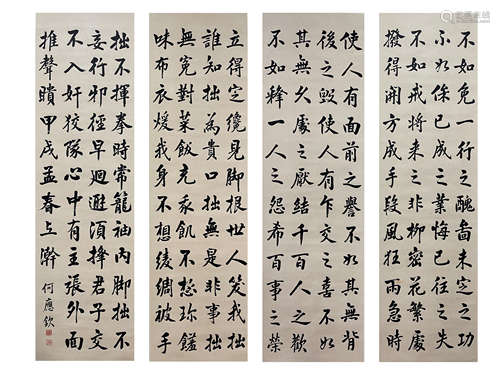 不如免一行之醜嗇未定之功
不如保已成之業悔已往之失
不如戒將來之非柳密花繁處
撥得開方成手段風狂雨急時
使人有面前之譽不如其無背
後之毀使人有乍交之喜不如
其無久處之厭結千百人之歡
不如釋一人之怨希百事之榮
立得定纔見脚根世人笑我拙
誰知拙為貴口拙無是非事拙
無冤對菜飯充家飢不愁珍饈
味布衣煖我身不想綾綢被手
拙不揮拳時常籠袖內脚拙不
妄行邪徑早迴避須擇君子交
不入奸狡隊心中有主張外面
推聾瞶甲戌孟春上澣
何應欽